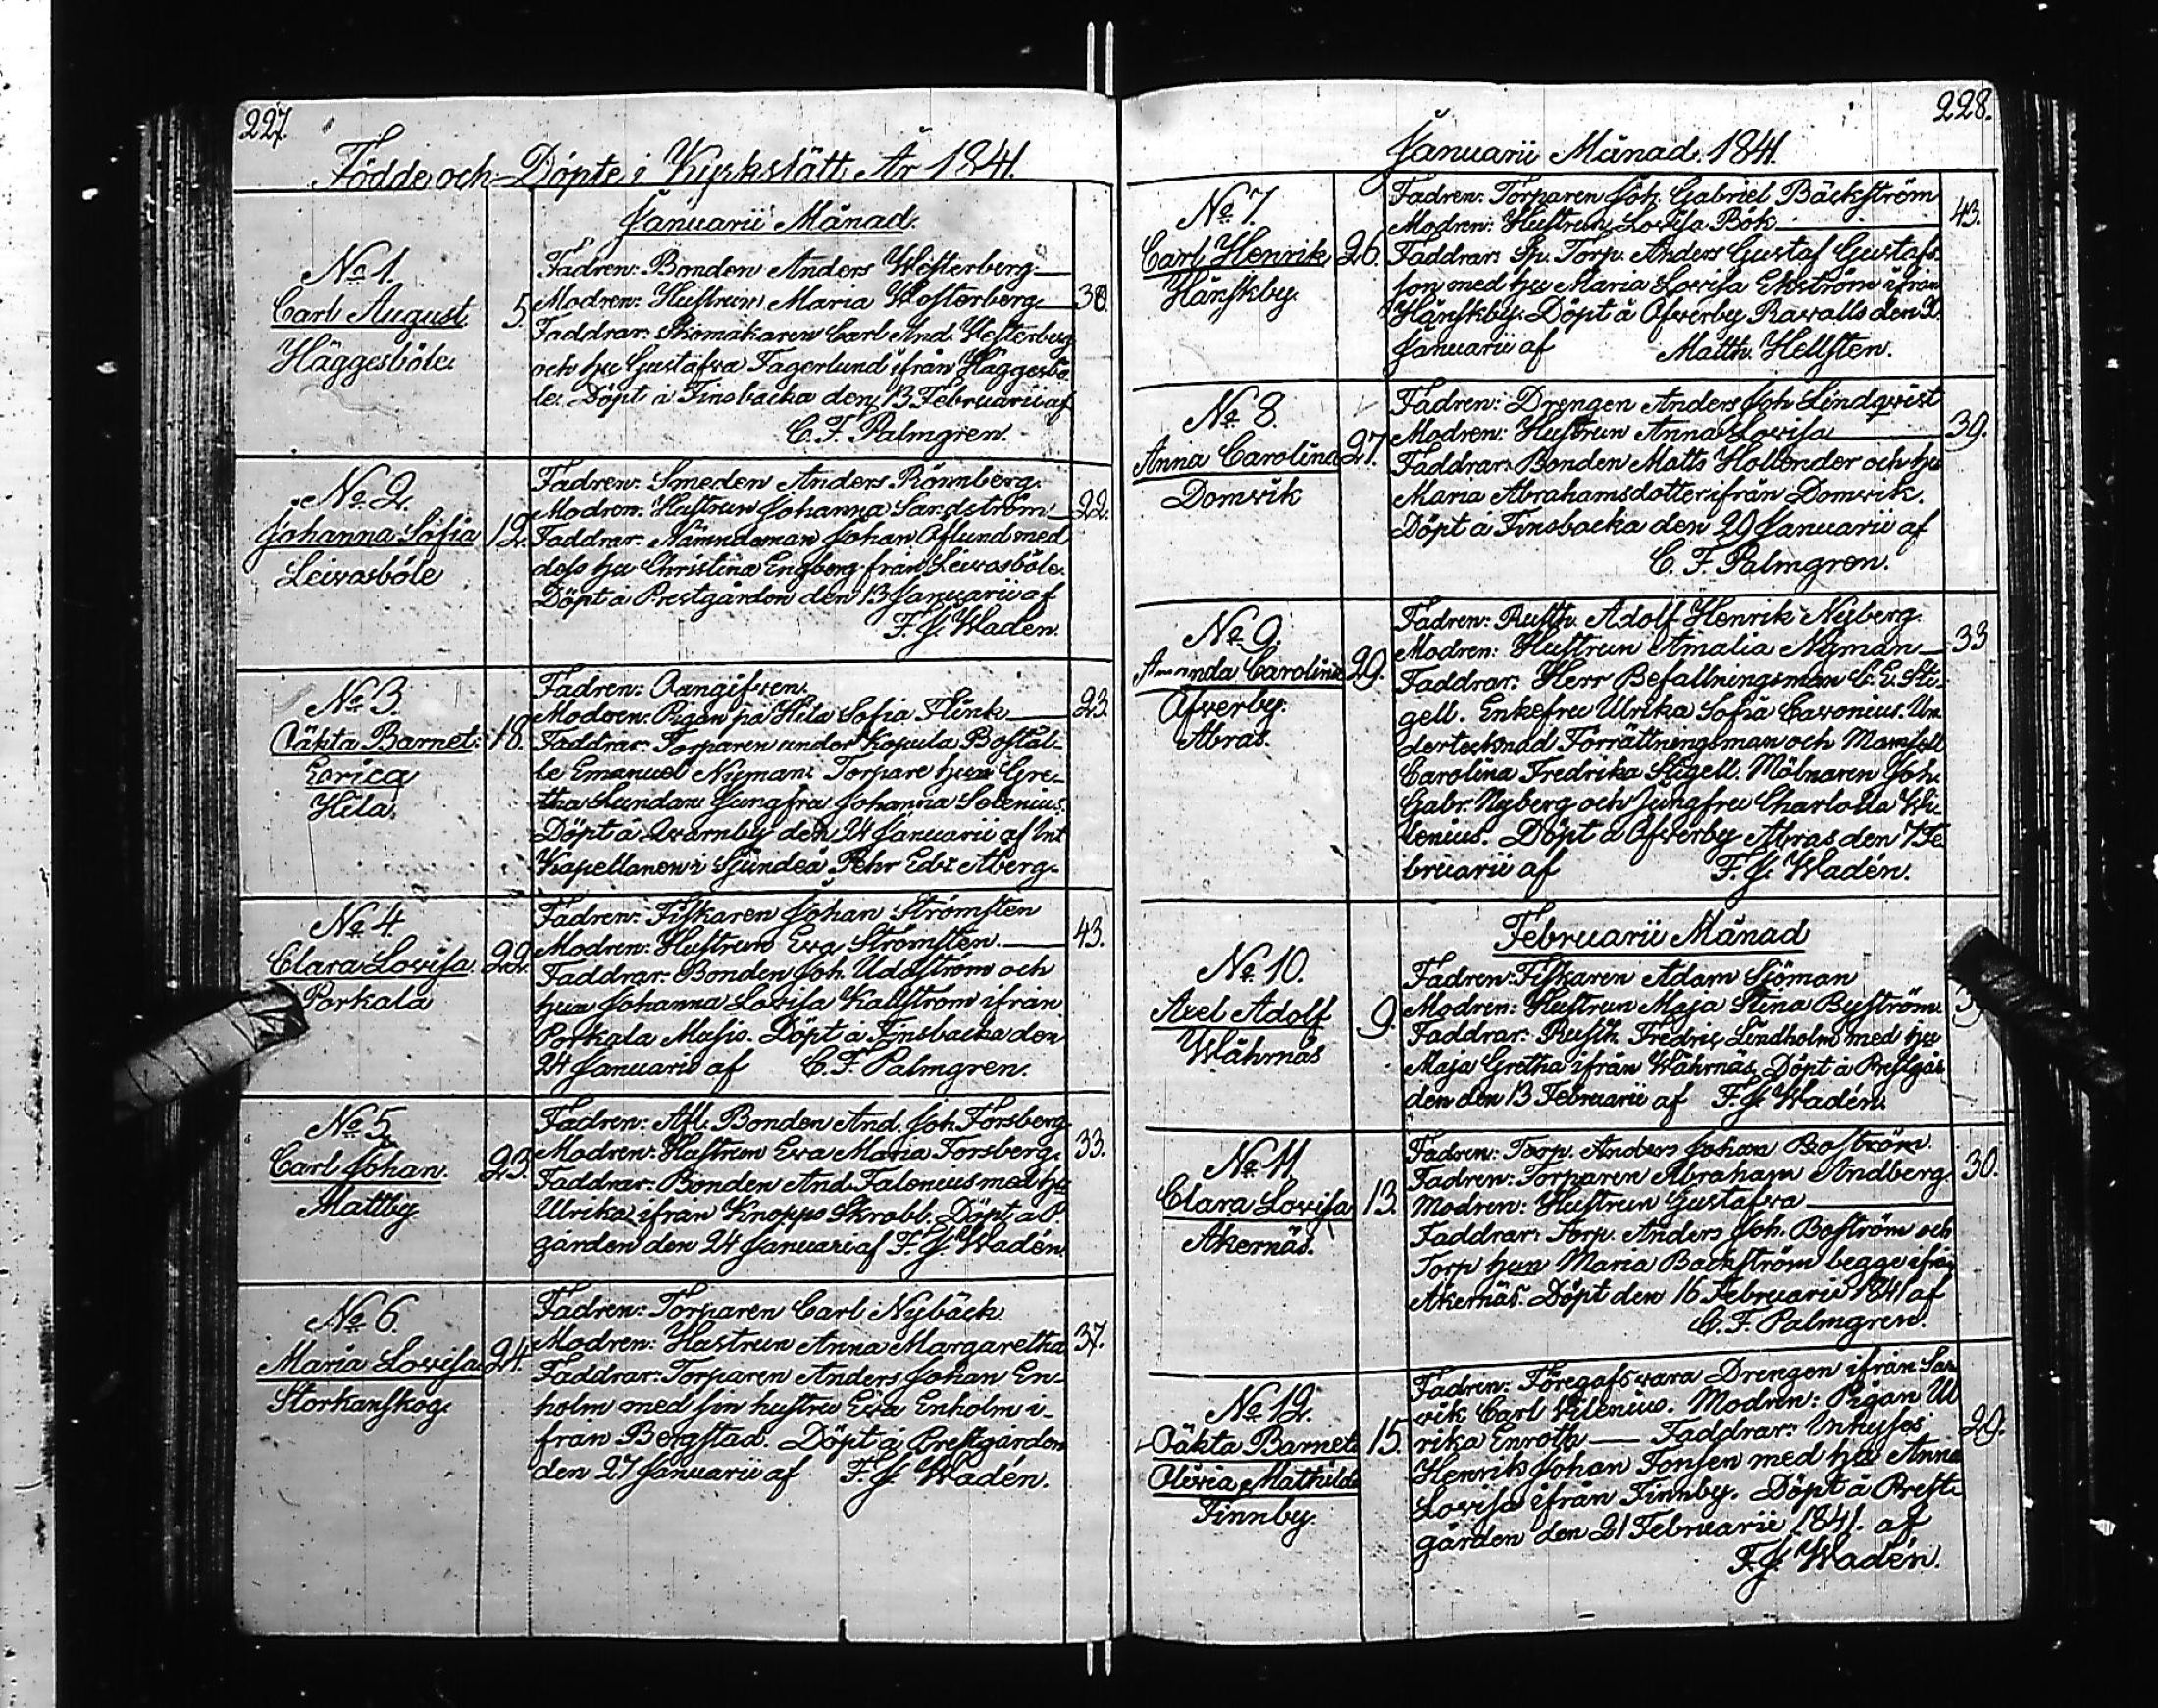 227.
Födde och Döpte i Kyrkslätt År 1841.
Januarii Månad.
No 1.
Carl August
Häggesböle.
5.
Fadren: Bonden Anders Westerberg
Modren: Hustrun Maria Westerberg
Faddrar: Skomakaren Carl And. Westerberg
och hu Gustafva Fagerlund ifrån Häggesbö
le. Döpt å Finsbacka den 13 Februarii af
C. F. Palmgren.
30.
No 2.
Johanna Sofia
Leivasböle
12.
Fadren: Smeden Anders Rönnberg.
Modren: Hustrun Johanna Sandström
Faddrar: Nämndeman Johan Öflund med
dess hu Christina Engberg från Leivasböle.
Döpt å Prestgården den 13 Januarii af
F. J. Wadén.
22.
No 3.
Oäkta Barnet:
Erica
Hila.
18.
Fadren: Oangifven.
Modren: Pigan på Hila Sofia Flink
Faddrar: Torparen under Kopula Boställ-
le Emanuel Nyman. Torpare hun Gre-
tha Lundan Jungfru Johanna Solenius.
Döpt å Qvarnby den 24 Januarii af
Kapellanen i Sjundeå Pehr Edv. Åberg.
23.
No 4.
Clara Lovisa.
Porkala
22.
Fadren: Fiskaren Johan Strömsten
Modren: Hustrun Eva Strömsten.
Faddrar: Bonden Joh. Uddström och
hun Johanna Lovisa Kallström ifrån
Porkala Masis. Döpt å Finsbacka den
24 Januarii af C. F. Palmgren.
43.
No 5.
Carl Johan.
Mattby
23.
Fadren: Afl. Bonden And. Joh. Forsberg
Modren: Hustrun Eva Maria Forsberg.
Faddrar: Bonden And. Falenius med hu
Ulrika ifrån Knopps Skrobb. Döpt å P.
gården den 24 Januari af F. J. Wadén.
33.
No 6.
Maria Lovisa
Storkanskog.
24.
Fadren: Torparen Carl Nybäck.
Modren: Hustrun Anna Margaretha
Faddrar: Torparen Anders Johan En-
holm med sin hustru Eva Enholm i-
från Bergstad. Döpt å Prestgården
den 27 Januarii af F. J. Wadén.
37.
228.
Januarii Månad. 1841.
No 7.
Carl Henrik
Hänskby.
26.
Fadren: Torparen Joh. Gabriel Bäckström
Modren: Hustrun Lovisa Bök
Faddrar: Sp. Torp. Anders Gustaf Gustafs-
son med hu Maria Lovisa Ekström ifrån
Hänskby. Döpt å Öfverby Ravalls den
Januarii af Matth. Hellsten.
43.
No 8.
Anna Carolina
Domvik
27.
Fadren: Drengen Anders Joh Lindqvist
Modren: Hustrun Anna Lovisa
Faddrar: Bonden Matts Hollender och hu
Maria Abrahamsdotter ifrån Domvik.
Döpt å Finsbacka den 29 Januarii af
C. F. Palmgren.
39.
No 9.
Amanda Carolina
Öfverby.
Abras.
29.
Fadren: Rusth. Adolf Henrik Nyberg.
Modren: Hustrun Amalia Nyman
Faddrar: Herr Befallningsman C. E. Sti-
gell. Enkefru Ulrika Sofia Cavonius. Un
dertecknad Förrättningsman och Mamsell
Carolina Fredrika Stigell. Mölnaren Joh.
Gabr. Nyberg och Jungfru Charlotta Wi-
lenius. Döpt å Öfverby Abras den 7 Fe
bruarii af F. J. Wadén.
33
Februarii Månad
No 10.
Axel Adolf
Wåhrnäs
9.
Fadren: Fiskaren Adam Sjöman
Modren: Hustrun Maja Stina Byström
Faddrar: Rusth. Fredric Lindholm med hu
Maja Gretha ifrån Wåhrnäs Döpt å Prestgår
den den 13 Februarii af F. J. Wadén.
No 11.
Clara Lovisa
Åkernäs.
13.
Fadren: Torp. Anders Johan Boström.
Fadren: Torparen Abraham Andberg
Modren: Hustrun Gustafva
Faddrar: Torp. Anders Joh. Boström och
Torp hun Maria Backström begge ifrån
Åkernäs. Döpt den 16 Februarii 1841 af
C. F. Palmgren.
30.
No 12.
Oäkta Barnet
Olivia Mathilda
Finnby.
15.
Fadren: Föregafs vara Drengen ifrån Sar
vik Carl Wilenius. Modren: Pigan Ul
rika Enroth Faddrar: Inhyses
Henrik Johan Fonsen med hu Anna
Lovisa ifrån Finnby. Döpt å Prest-
gården den 21 Februarii 1841. af
F. J. Wadén.
29.